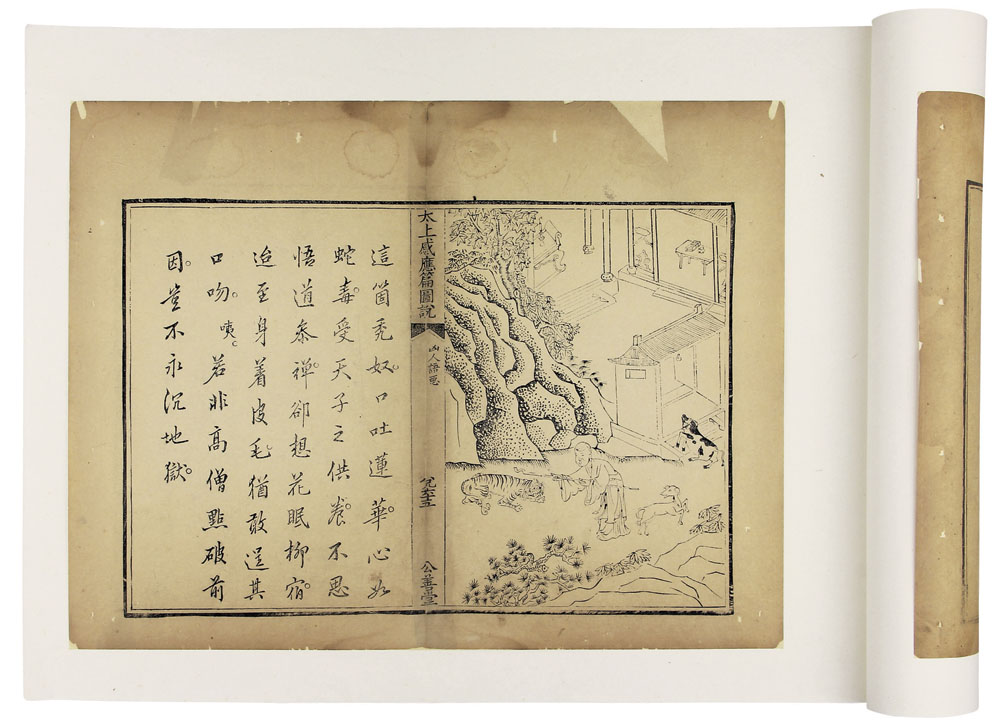 太上感應篇圖說
凶人語惡
公善堂
這箇禿奴。口吐蓮華。心如
蛇毒。受天子之供養。不思
悟道參禪。卻想花眠柳宿。
迨至身着皮毛。猶敢逞其
口吻。咦。若非高僧點破前
因。豈不永沉地獄。